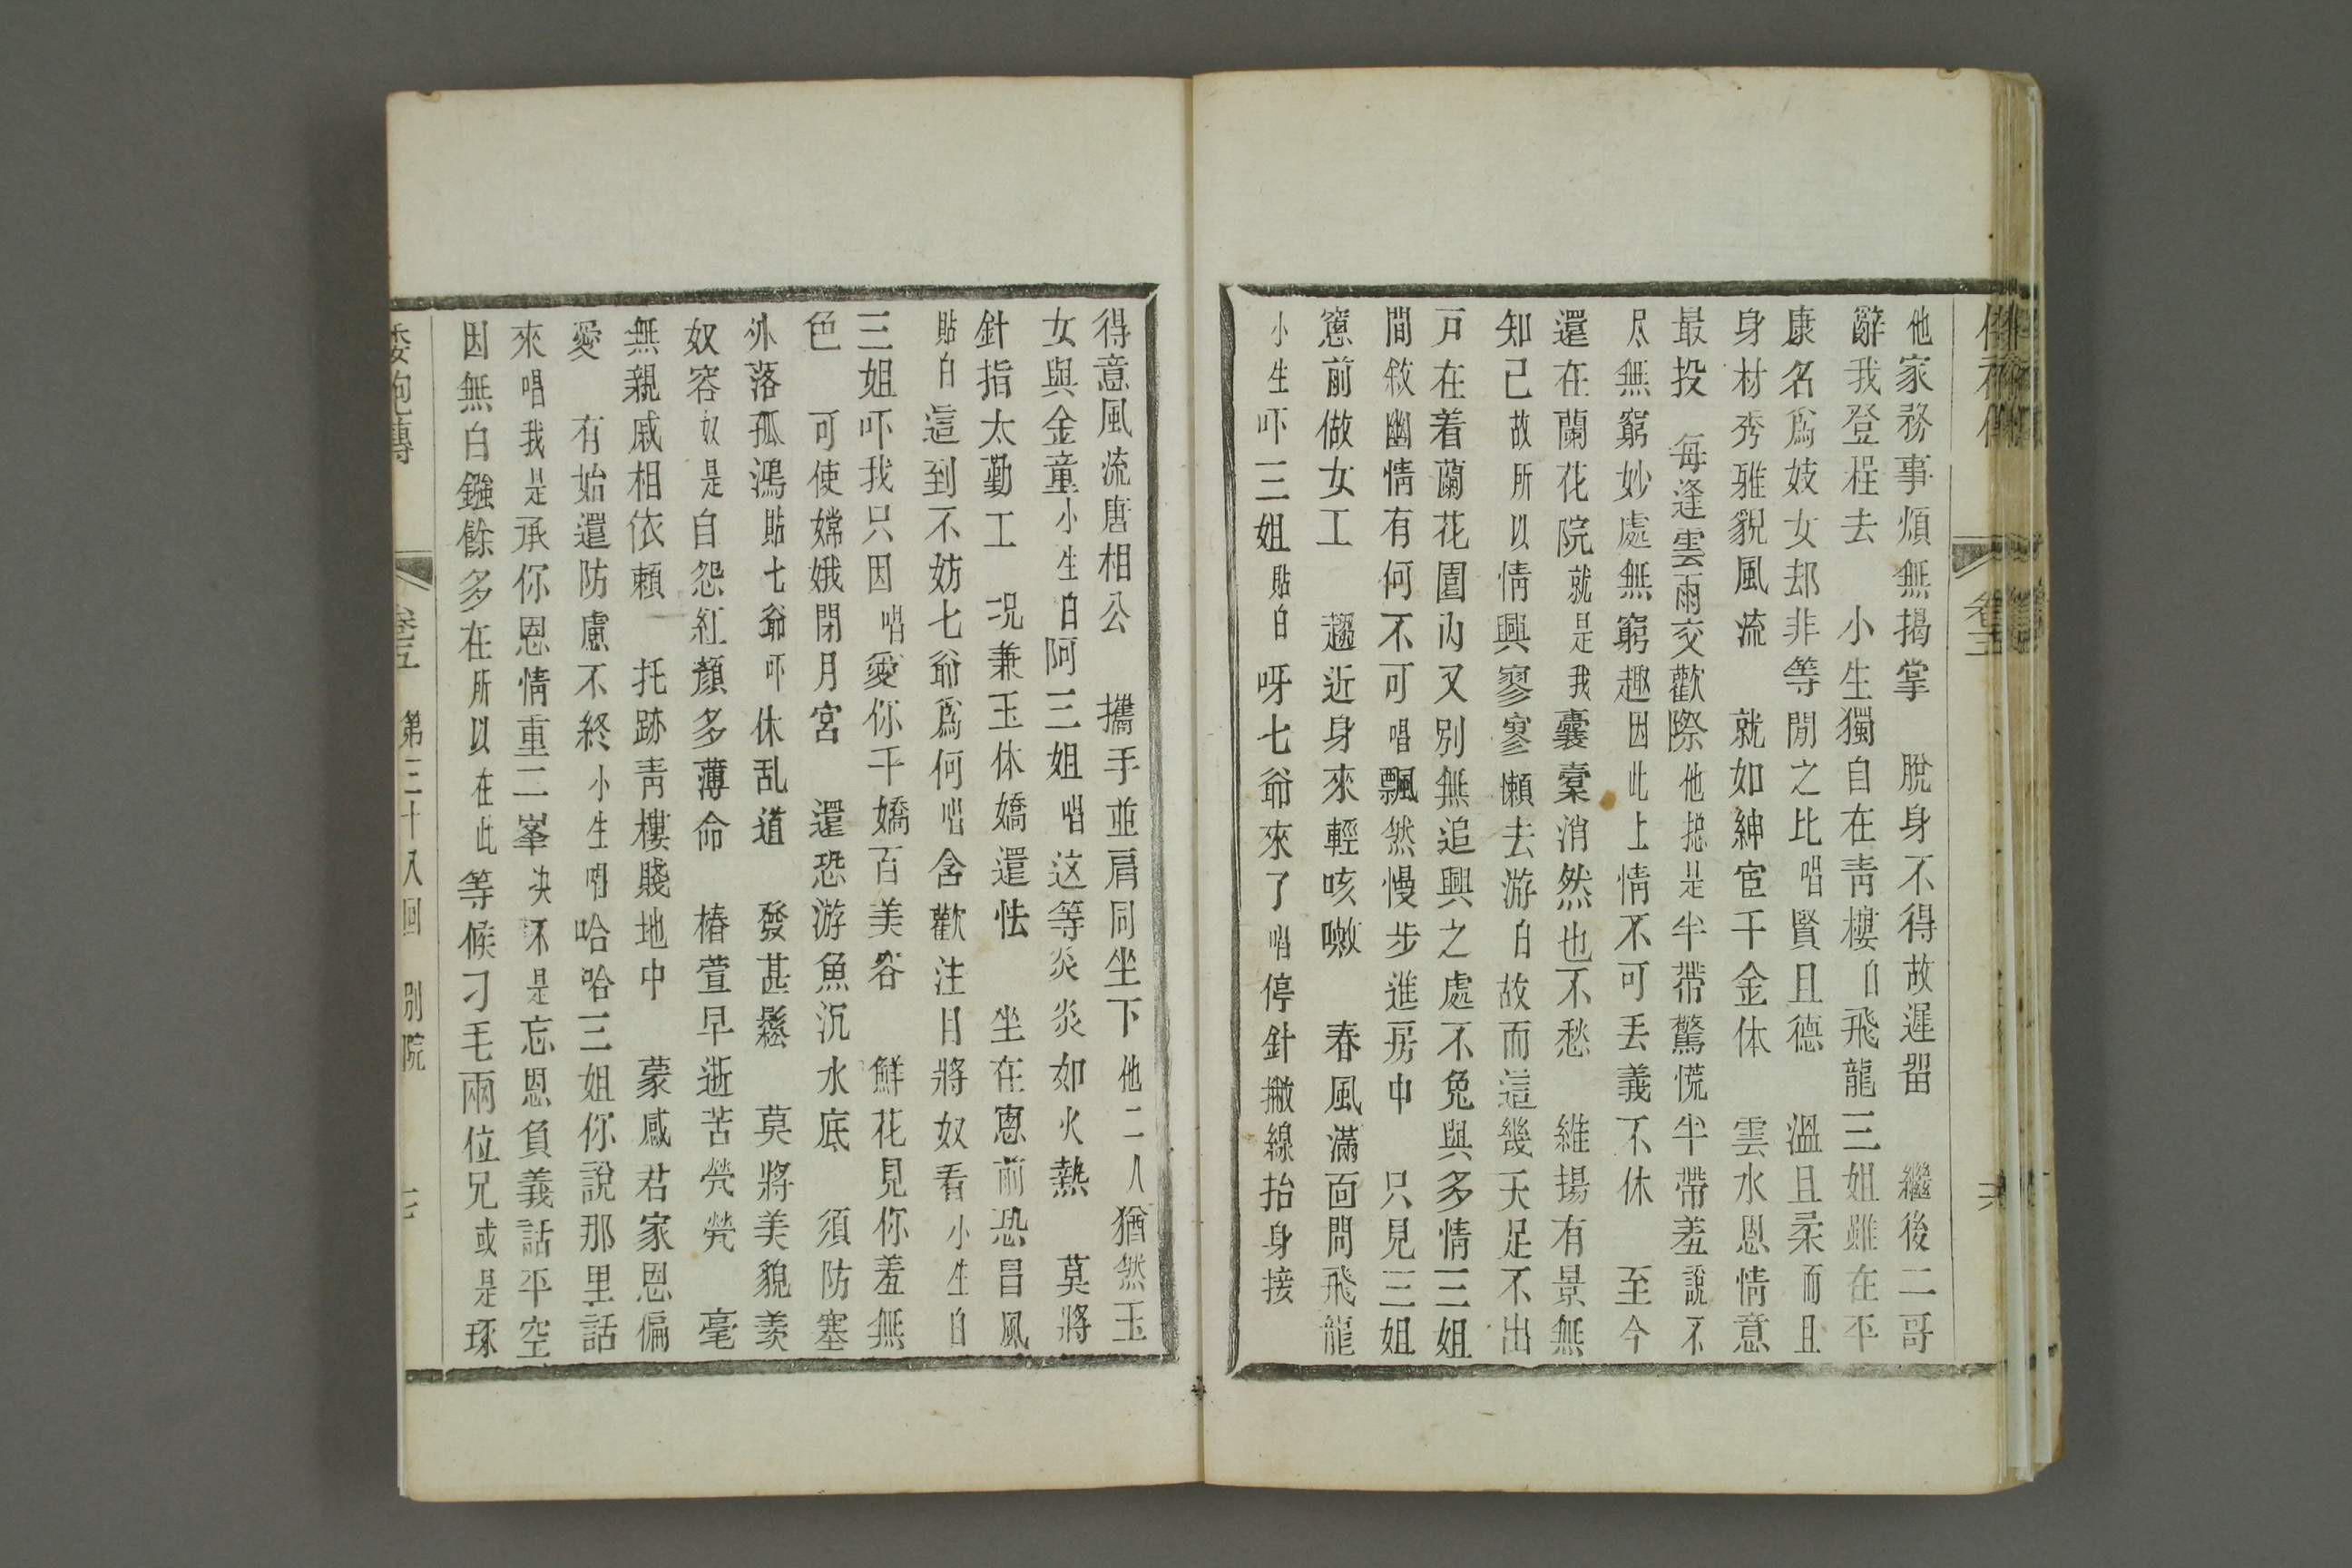 他家務事煩無揭掌　脫身不得故遲畱　繼後二哥
辭我登程去　小生獨自在靑樓白飛龍三姐雖在平
康名爲妓女却非等閒之比唱賢且德　溫且柔而且
身材秀雅貌風流　就如紳宦千金体　雲水恩情意
最投　每逢雲雨交歡際他摠是半帶驚慌半帶羞說不
尽無窮妙處無窮趣因此上情不可丢義不休　至今
還在蘭花院就是我囊槖消然也不愁　維揚有景無
知己故所以情興寥寥懶去游白故而這幾天足不出
戸在着蘭花園內又別無追興之處不免與多情三姐
間敘幽情有何不可唱飄然慢步進房中　只見三姐
窻前做女工　趨近身來輕咳嗽　春風滿面問飛龍
小生吓三姐貼白呀七爺來了唱停針撇線抬身接
得意風流唐相公　攜手並肩同坐下他二人猶然玉
女與金童小生白阿三姐唱这等炎炎如火熱　莫將
針指太勤工　况兼玉体嬌還怯　坐在窻前恐昌風
貼白這到不妨七爺爲何唱含歡注目將奴看小生白
三姐吓我只因唱愛你千嬌百美容　鮮花見你羞無
色　可使嫦娥閉月宮　還恐游魚沉水底　須防塞
外落孤鴻貼七爺吓休乱道　發甚鬆　莫將美貌羡
奴容奴是自怨紅顏多薄命　椿萱早逝苦煢煢　毫
無親戚相依賴　托跡靑樓賤地中　蒙感君家恩偏
愛　有始還防慮不終小生唱哈哈三姐你說那里話
來唱我是承你恩情重二峯决不是忘恩負義話平空
因無白鏹餘多在所以在此等候刁毛兩位兄或是琢
卷五　第三十八回　別院　七